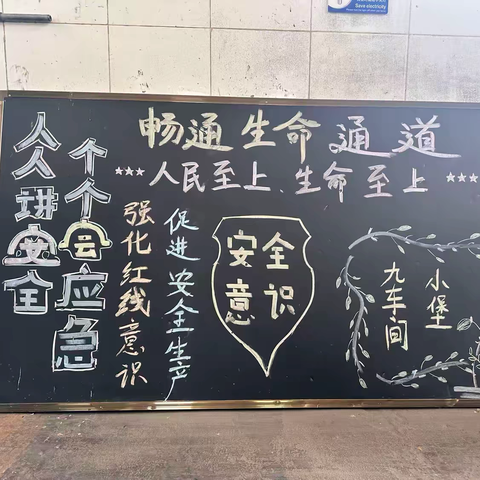 Save electricity
畅通生命通道
人民至上、生命至上
人人讲安全
个个会应急
强化红线意识
促进安全生产
安全
意识
小堡
九车间